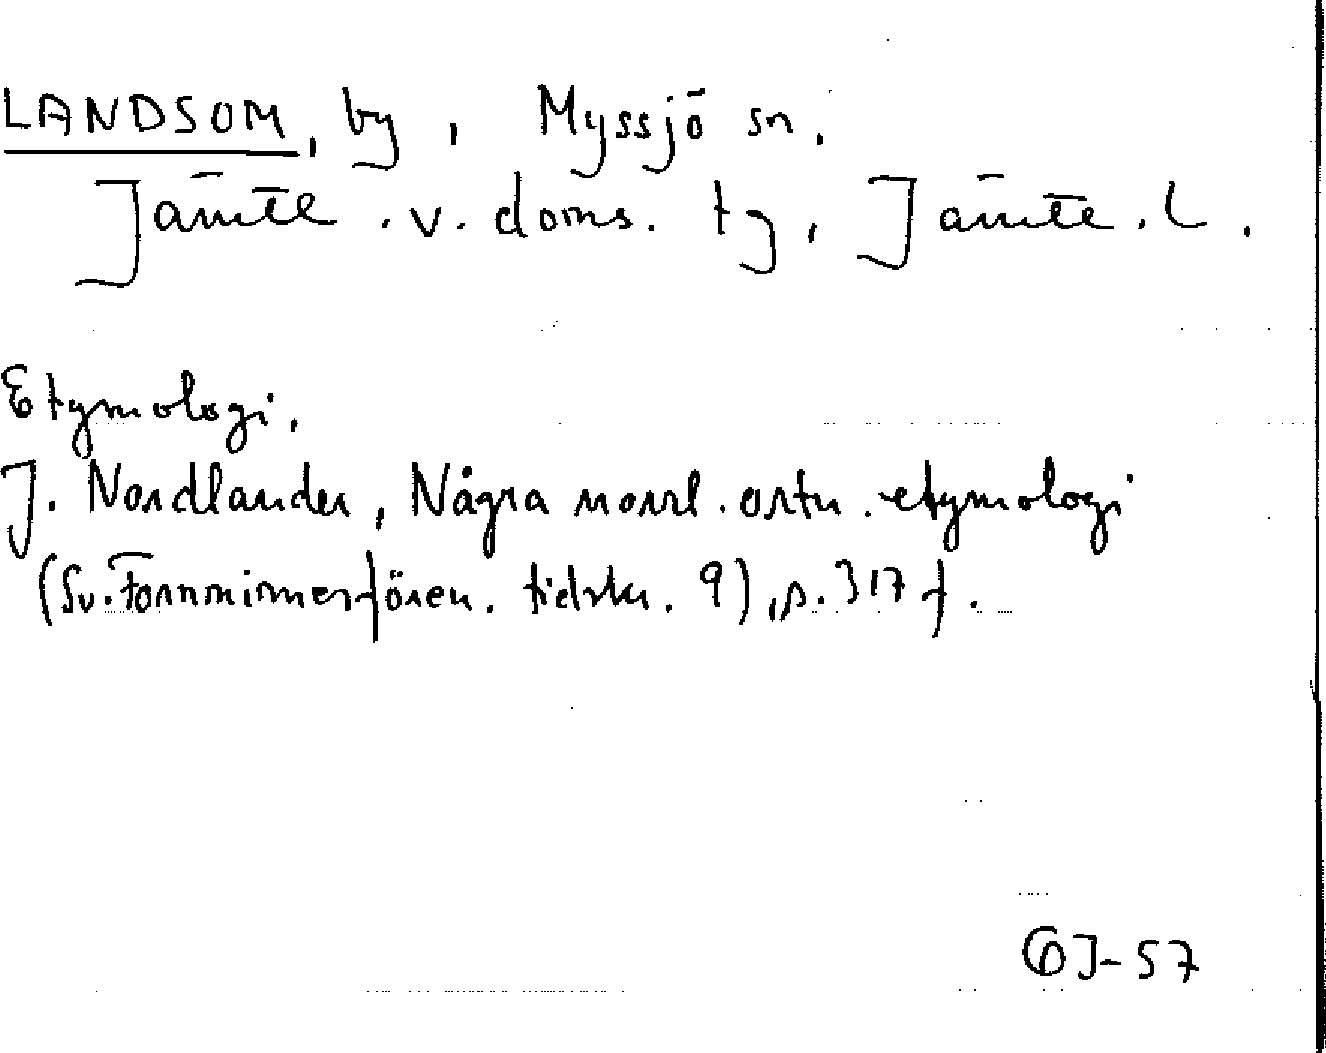 LANDSOM, by, Myssjö sn.
Jämtl. v. doms. tg, Jämtl. l.
Etymologi.
J. Nordlander, Några norrl. ortn. etymologi
(Sv. Fornminnesfören. tidskr. 9), s. 317 f.
ÖJ-57